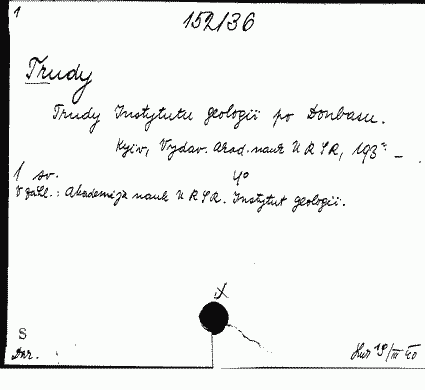 1
152/36
Trudy
Trudy Instytutu geologii po Donbasu.
Kyiv, Vydav. Akad. nauk URSR, 193 -.
1 sv. 4°
V záhl.: Akademija nauk URSR. Instytut geologii.
X
S
Dar. 19/III 40